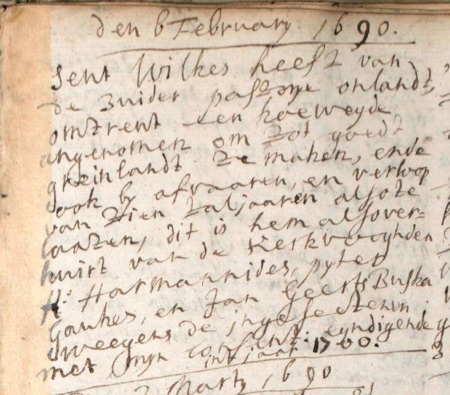 den 6 February 1690.
Sent Wilkes heeft van
de Zuider pastorye onlandt,
omtrent een koeweyde
angenomen om tot goedt
greinlandt te maken, ende
ook by afvaaren, en verloop
van tien taljaaren alsote
laaten, dit is hem alsover-
huirt van de Kerkvoogden
H: Harmannides, pyter
Gaukes, en Jan Geerts Buska
wegens de ingesetenen
met myn consent: eyndigende
int jaar 1700.
Marty 1690